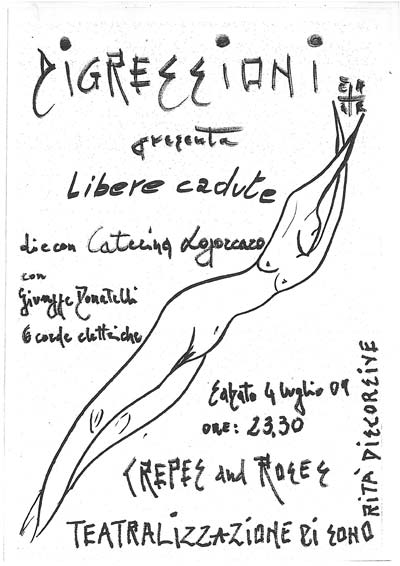 DIGRESSIONI
presenta
Libere cadute
di e con Caterina
con
Giuseppe Donatelli
6 corde elettriche
Sabato 4 luglio 09
ore: 23,30
CREPES and ROSES
TEATRALIZZAZIONE DI SONO
RITÀ DISCORSIVE